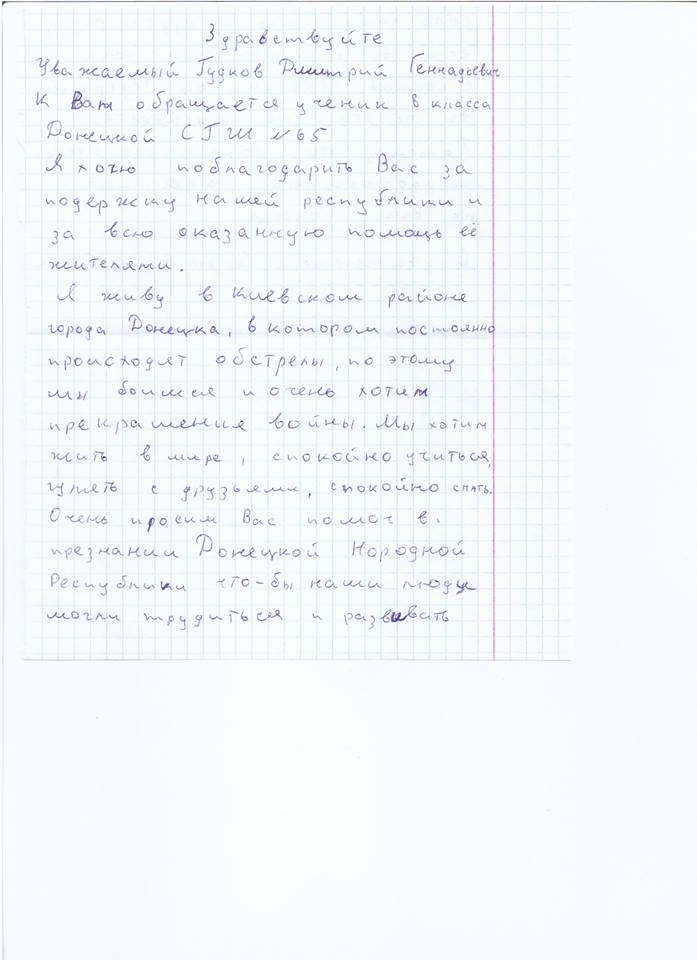 Здравствуйте
Уважаемый Гудков Дмитрий Геннадьевич
К Вам обращается ученик 8 класса
Донецкой СГШ №65
Я хочу поблагодарить Вас за
подержку нашей республики и
за всю оказанную помощь её
жителями.
Я живу в Киевском районе
города Донецка, в котором постоянно
происходят обстрелы, по этому
мы боимся и очень хотим
прекращения войны. Мы хотим
жить в мире, спокойно учиться,
гулять с друзьями, спокойно спать.
Очень просим Вас помоч в.
презнании Донецкой Нородной
Республики что-бы наши люди
могли трудиться и развивать